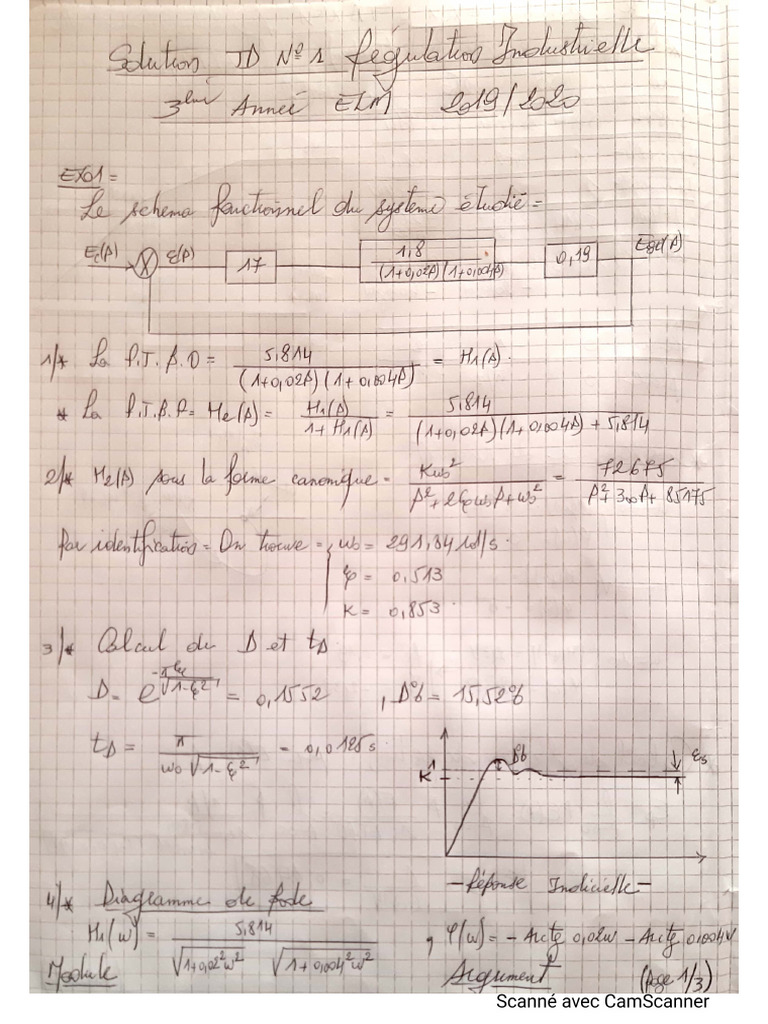 Solution TD N°1 Régulation Industielle
3ème Année ELM 2019/2020
EX01=
Le schema fonctionnel du systeme étudié=
Ec(p) ε(p) 17 1,8 / (1+0,02p)(1+0,004p) 0,19
1/* La F.T.B.O = 5,814 / (1+0,02p)(1+0,004p) = H1(p).
* La F.T.B.F= H2(p)= H1(p) / 1+H1(p) = 5,814 / (1+0,02p)(1+0,004p)+5,814
2/* H2(p) sous la forme canonique= Kω0² / p²+2ξω0p+ω0² = 72675 / p²+300p+85175
Par identification= On trouve= ω0= 291,84 rd/s.
ξ= 0,513
K= 0,853.
3/* Calcul de D et tp
D= e^(-πξ/√1-ξ²) = 0,1552 , D%= 15,52%
tp= π / ω0√1-ξ² = 0,0125s
K 1 D% εs
-Réponse Indicielle-
4/* Diagramme de Bode
H1(ω)= 5,814 / √1+0,02²ω² √1+0,004²ω² , φ(ω)= -Arctg 0,02ω -Arctg 0,004ω
Module Argument (page 1/3)
Scanné avec CamScanner